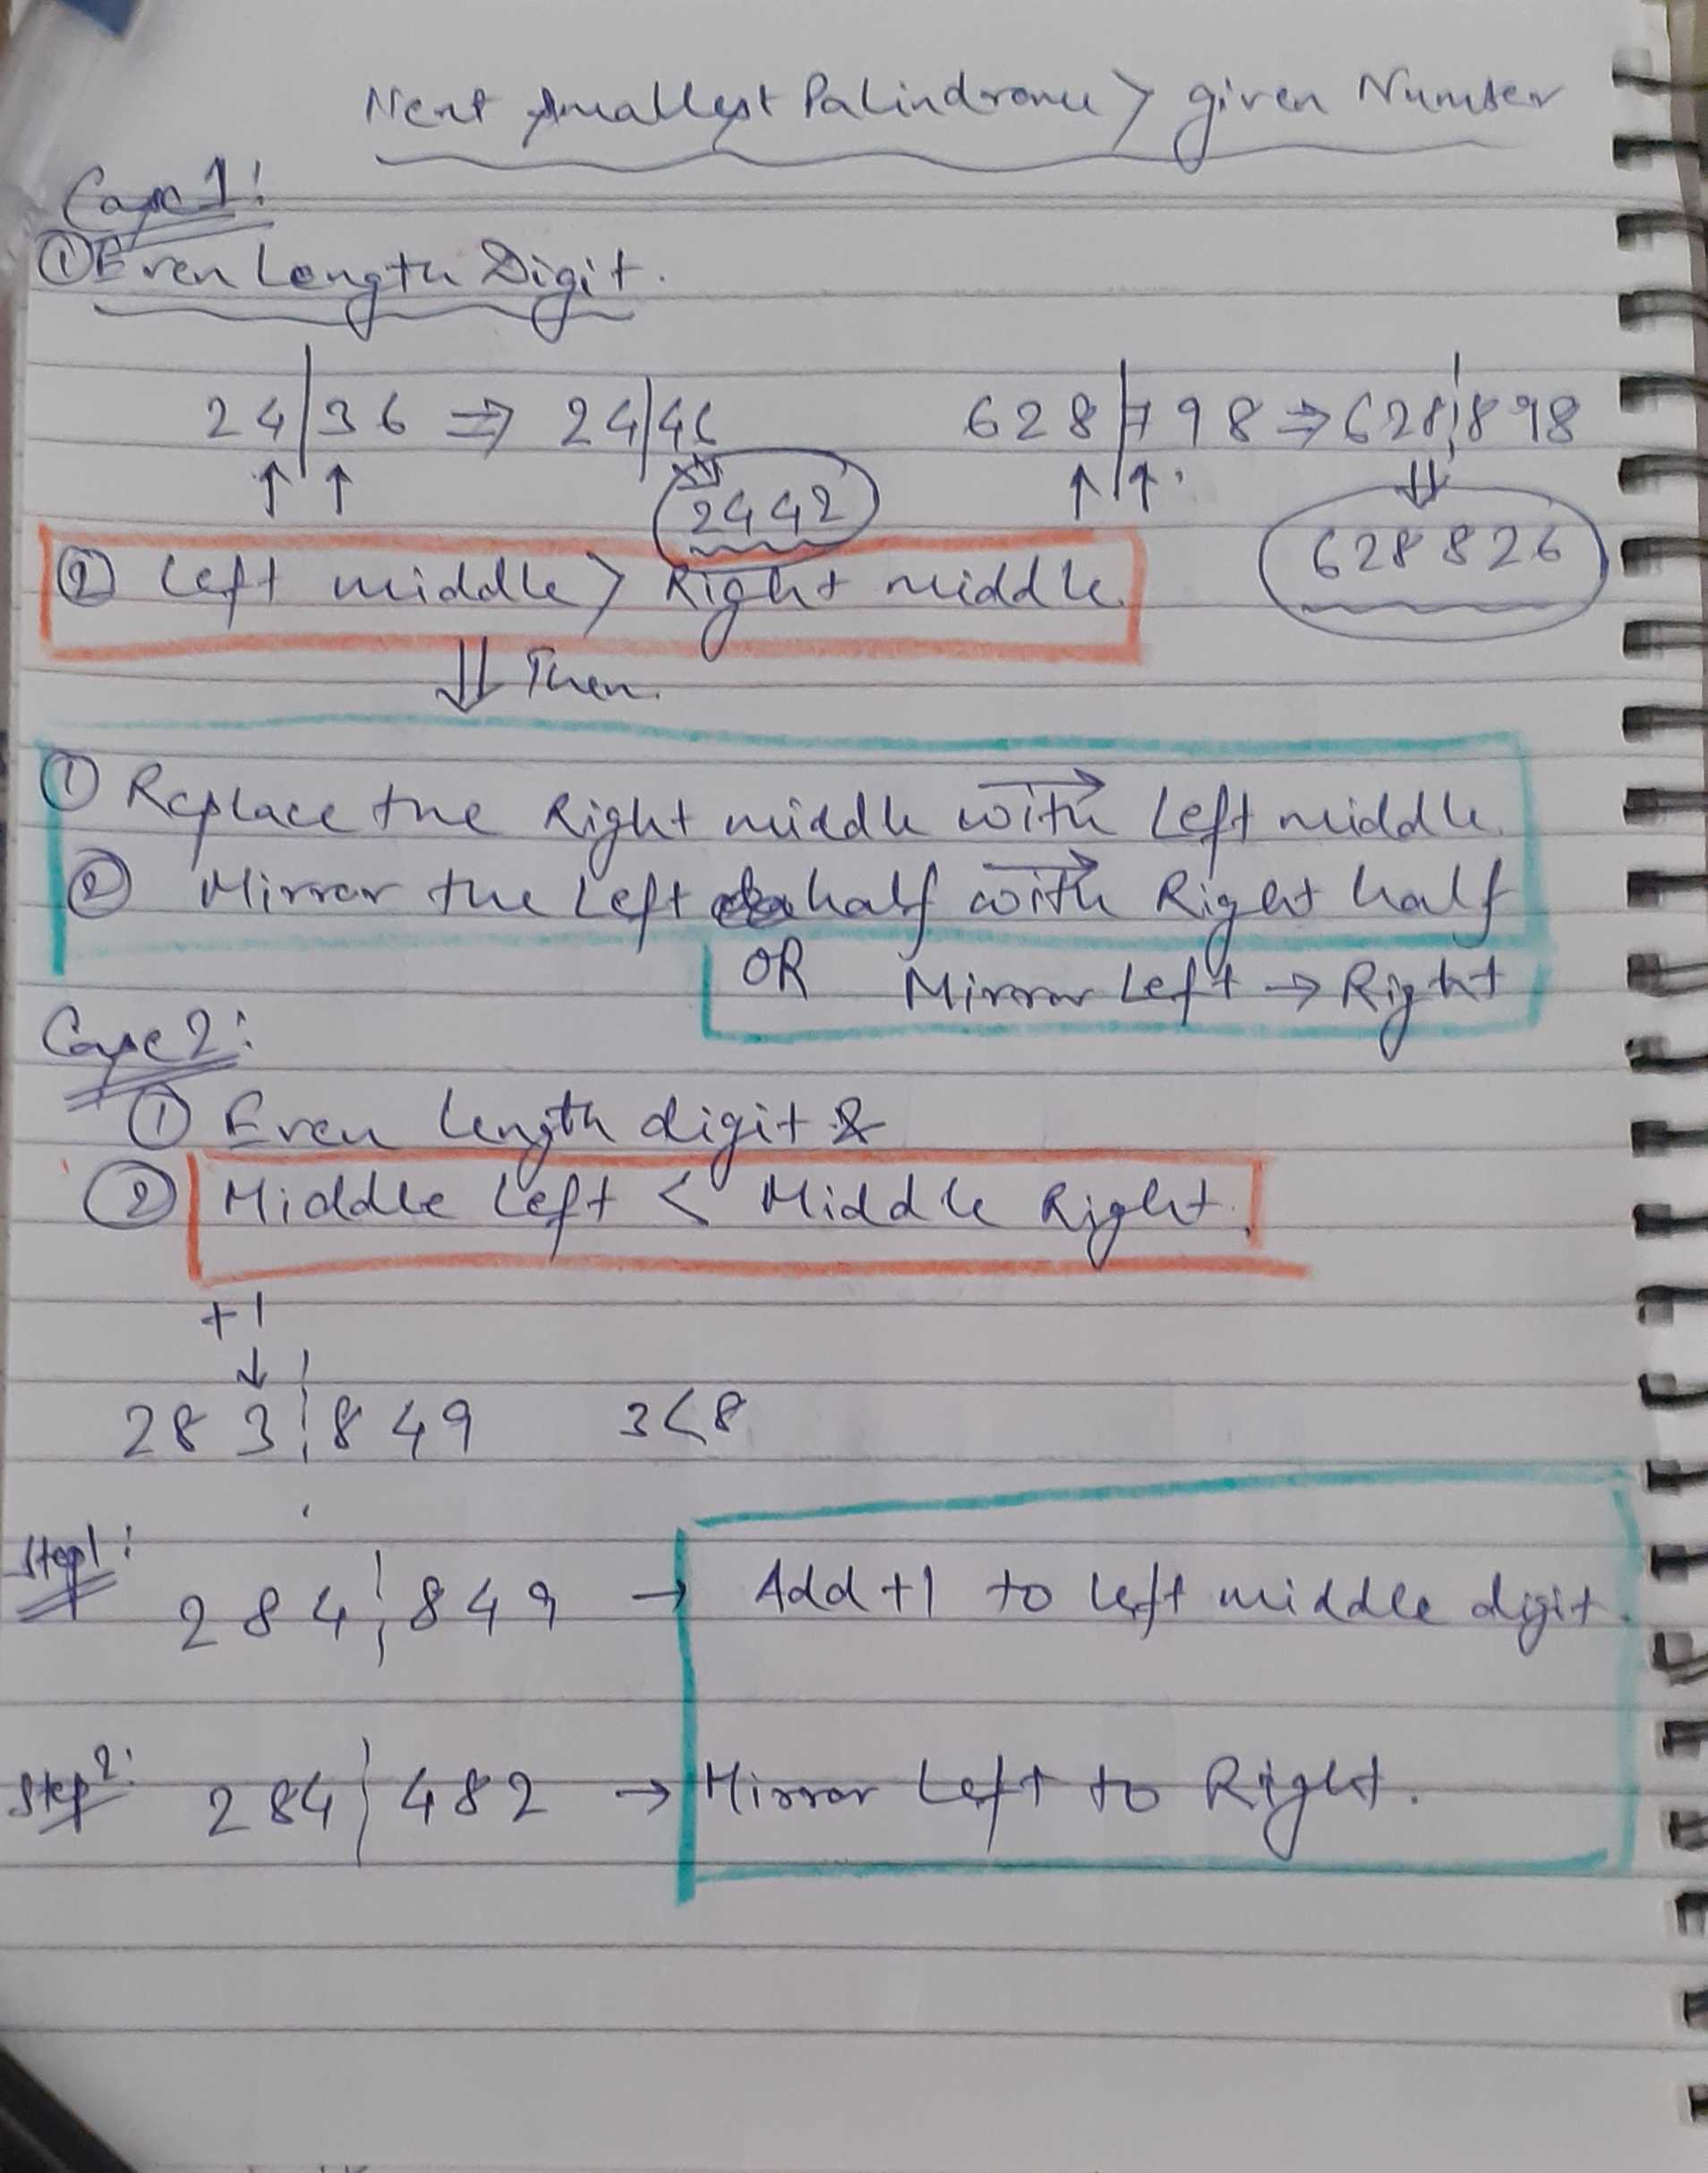 Next smallest Palindrome > given Number
Case 1:
① Even Length Digit.
24|36 ⇒ 24|46 628|798 ⇒ 628¦898
↑ ↑ ⇓ ↑ ↑ ⇓
2442 628826
② Left middle > Right middle.
⇓ Then.
① Replace the Right middle with Left middle.
② Mirror the Left half with Right half
OR Mirror Left → Right
Case 2:
① Even length digit &
② Middle Left < Middle Right.
+1
↓
283¦849 3<8
Step1: 284¦849 → Add +1 to left middle digit.
Step2: 284¦482 → Mirror Left to Right.